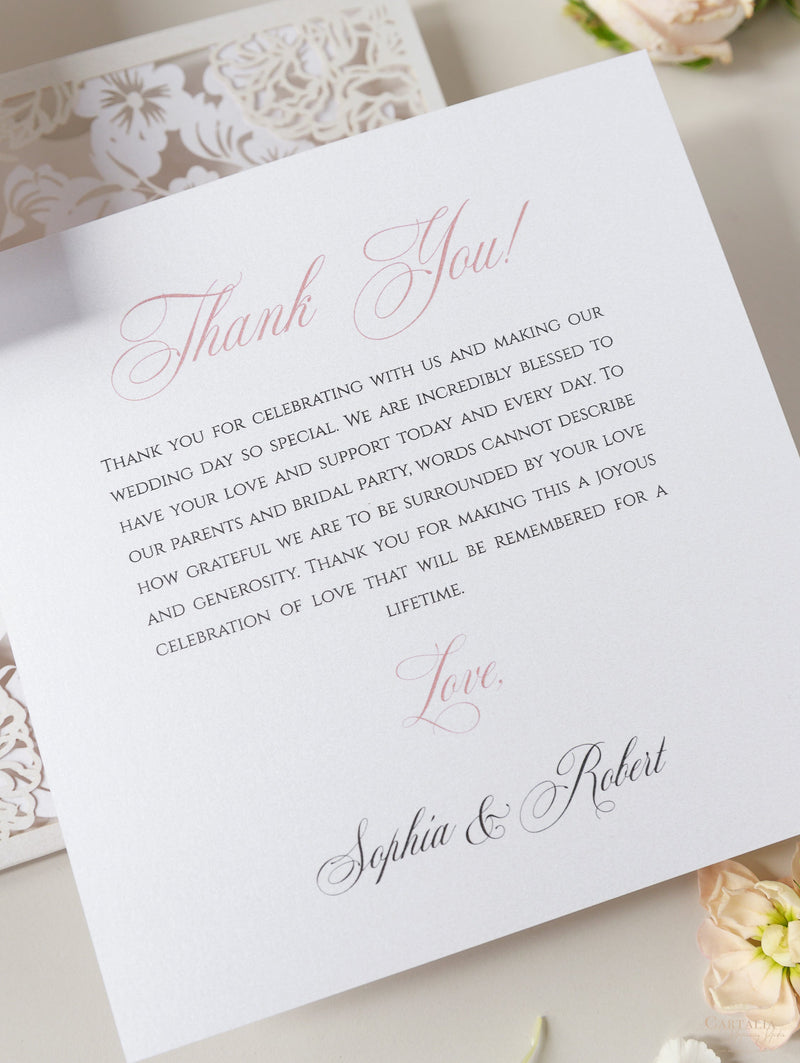 Thank You!
Thank you for celebrating with us and making our
wedding day so special. We are incredibly blessed to
have your love and support today and every day. To
our parents and bridal party, words cannot describe
how grateful we are to be surrounded by your love
and generosity. Thank you for making this a joyous
celebration of love that will be remembered for a
lifetime.
Love,
Sophia & Robert
Cartalia